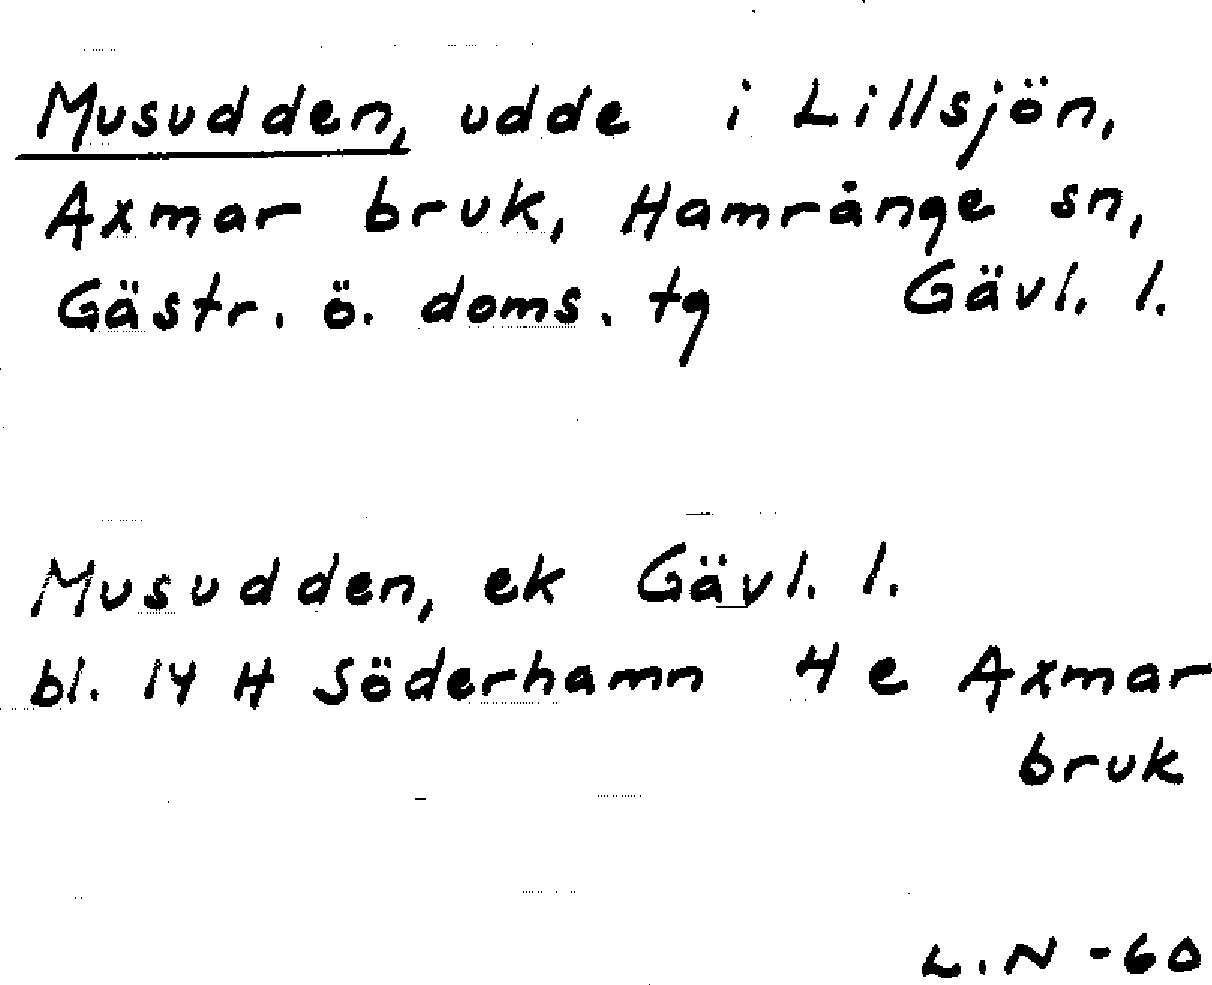 Musudden, udde i Lillsjön,
Axmar bruk, Hamrånge sn,
Gästr. ö. doms. tg Gävl. l.
Musudden, ek Gävl. l.
bl. 14 H Söderhamn 4 e Axmar
bruk
L.N -60